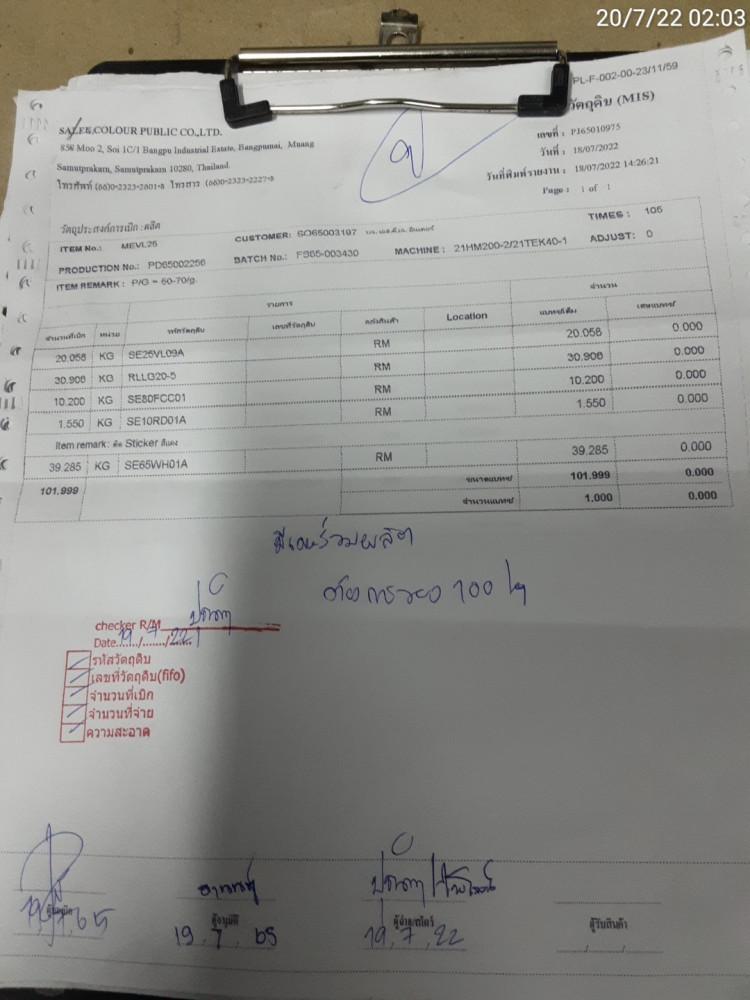 20/7/22 02:03
PL-F-002-00-23/11/59
วัตถุดิบ (MIS)
SALEE COLOUR PUBLIC CO.,LTD.
858 Moo 2, Soi 1C/1 Bangpu Industrial Estate, Bangpumai, Muang
Samutprakarn, Samutprakarn 10280, Thailand.
โทรศัพท์ (66)0-2323-2601-8 โทรสาร (66)0-2323-2227-8
เลขที่ : P165010975
วันที่ : 18/07/2022
วันที่พิมพ์รายงาน : 18/07/2022 14:26:21
Page : 1 of 1
วัตถุประสงค์การเบิก : ผลิต
ITEM No.: MEVL25 CUSTOMER: SO65003197 TIMES : 105
PRODUCTION No.: PD65002256 BATCH No.: FS65-003430 MACHINE : 21HM200-2/21TEK40-1 ADJUST: 0
ITEM REMARK : P/G = 60-70/g.
รายการ จำนวน
จำนวนที่เบิก หน่วย รหัสวัตถุดิบ เลขที่วัตถุดิบ คลังสินค้า Location แบทช์เต็ม เศษแบทช์
20.058 KG SE25VL09A RM 20.058 0.000
30.906 KG RLLG20-5 RM 30.906 0.000
10.200 KG SE80FCC01 RM 10.200 0.000
1.550 KG SE10RD01A RM 1.550 0.000
Item remark: ติด Sticker สีแดง
39.285 KG SE65WH01A RM 39.285 0.000
101.999 ขนาดแบทช์ 101.999 0.000
จำนวนแบทช์ 1.000 0.000
ต้องการของ 100 kg
checker R/M
Date 19/7/22
รหัสวัตถุดิบ
เลขที่วัตถุดิบ(fifo)
จำนวนที่เบิก
จำนวนที่จ่าย
ความสะอาด
ผู้อนุมัติ ผู้จ่าย/สโตร์ ผู้รับสินค้า
19.7.65 19.7.65 19.7.22